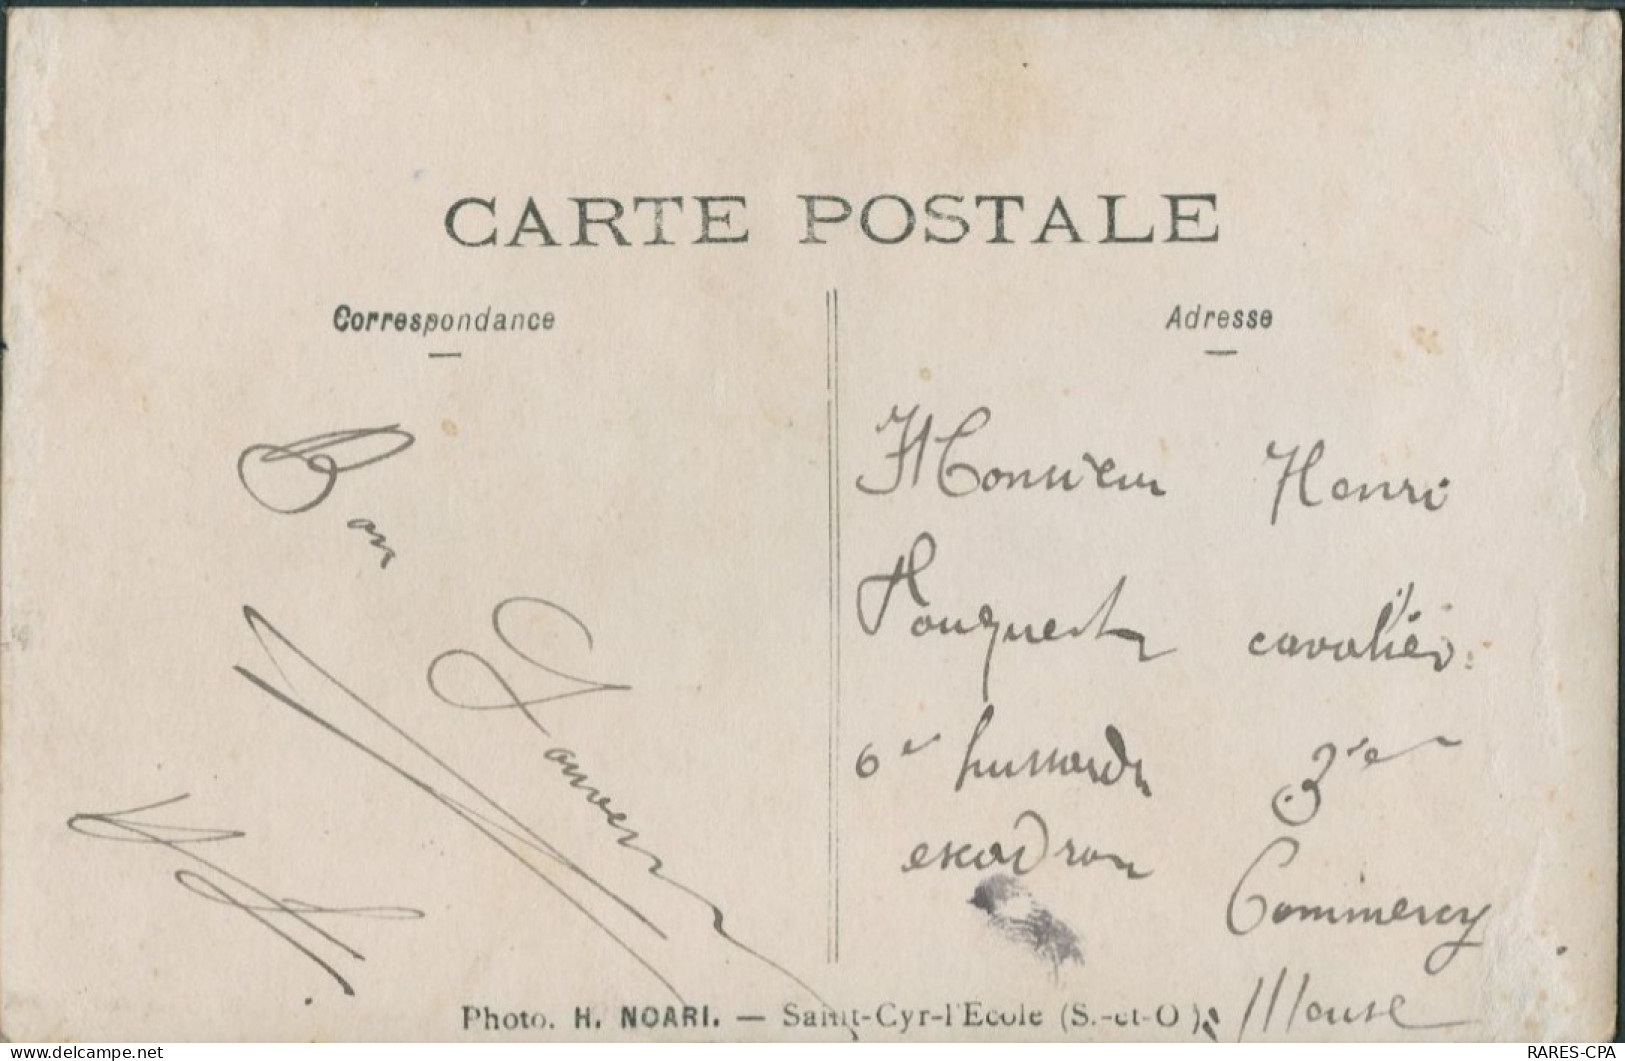 CARTE POSTALE
Correspondance
Adresse
Bon
Souvenir
Monsieur Henri
Fouquest cavalier
6e hussards 3e
escadron
Commercy
Meuse
Photo. H. NOARI. — Saint-Cyr-l'Ecole (S.-et-O)
RARES-CPA
www.delcampe.net